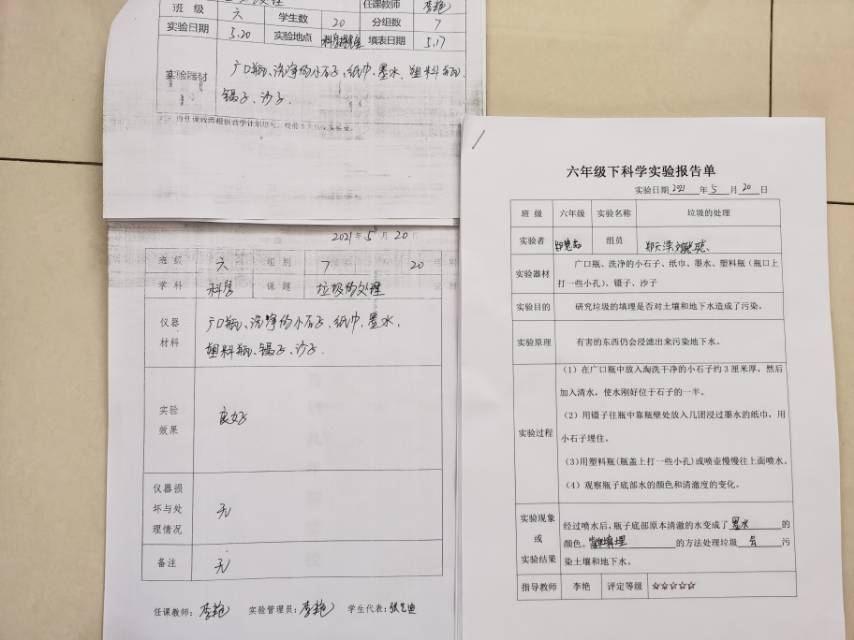 任课教师 李艳
班 级 六 学生数 20 分组数 7
实验日期 5.20 实验地点 填表日期 5.17
实验器材 广口瓶、洗净的小石子、纸巾、墨水、塑料瓶、
镊子、沙子.
2021年5月20日
班级 六 组别 7 20
学科 科学 课题 垃圾的处理
仪器 广口瓶、洗净的小石子、纸巾、墨水、
材料 塑料瓶、镊子、沙子.
实验
效果 良好
仪器损
坏与处 无
理情况
备注 无
任课教师: 李艳 实验管理员: 李艳 学生代表:
六年级下科学实验报告单
实验日期 2021 年 5 月 20 日
班 级 六年级 实验名称 垃圾的处理
实验者 组员
实验器材 广口瓶、洗净的小石子、纸巾、墨水、塑料瓶(瓶口上
打一些小孔)、镊子、沙子
实验目的 研究垃圾的填埋是否对土壤和地下水造成了污染。
实验原理 有害的东西仍会浸滤出来污染地下水。
实验过程 (1)在广口瓶中放入淘洗干净的小石子约3厘米厚,然后
加入清水,使水刚好位于石子的一半。
(2)用镊子往瓶中靠瓶壁处放入几团浸过墨水的纸巾,用
小石子埋住。
(3)用塑料瓶(瓶盖上打一些小孔)或喷壶慢慢往上面喷水。
(4)观察瓶子底部水的颜色和清澈度的变化。
实验现象 经过喷水后,瓶子底部原本清澈的水变成了 墨水 的
或 颜色。 填埋 的方法处理垃圾 会 污
实验结果 染土壤和地下水。
指导教师 李艳 评定等级 ☆☆☆☆☆